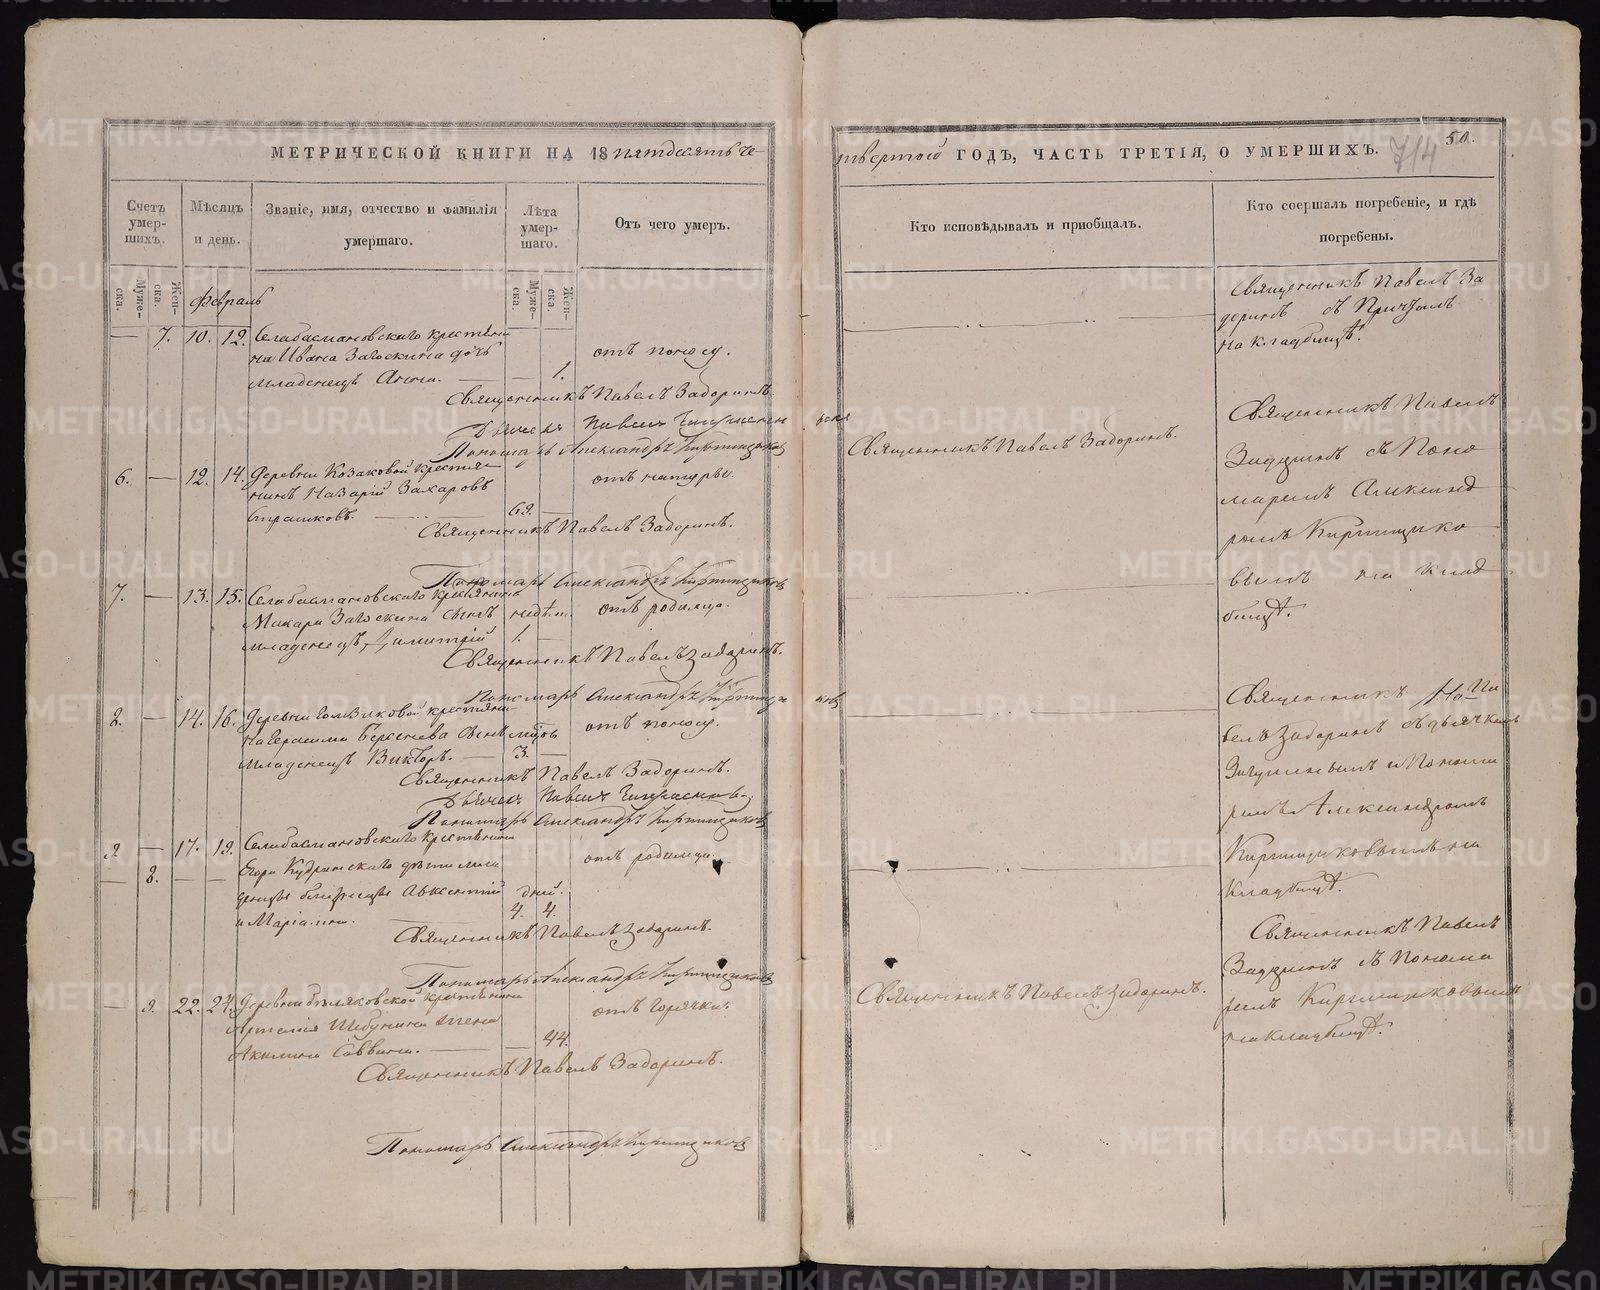 МЕТРИЧЕСКОЙ КНИГИ НА 18 пятдесятъ че-
Счетъ умерших.
Мѣсяцъ и день.
Званіе, имя, отчество и фамилія умершаго.
Лѣта умершаго.
Отъ чего умеръ.
Муже-ска. Жен-ска.
Муже-ска. Жен-ска.
Февраль
7. 10. 12. Села крестьяни
на Ивана Загоскина дочь отъ поносу.
младенецъ Анна. 1.
Священникъ Павелъ Задоринъ.
Дьячекъ Павелъ
Пономарь Александръ Кирпищиковъ
6. 12. 14. Деревни Козаковой крестья
нинъ Назарій Захаровъ отъ натуры.
Страшковъ. 69.
Священникъ Павелъ Задоринъ.
Пономарь Александръ Кирпищиковъ
7. 13. 15. Села крестьянина
Макара Загоскина сынъ недѣл. отъ родимца.
младенецъ Димитрій 1.
Священникъ Павелъ Задоринъ.
Пономарь Александръ Кирпищиковъ
8. 14. 16. Деревни крестьяни
на Герасима сынъ мцовъ отъ поносу.
младенецъ Викторъ. 3.
Священникъ Павелъ Задоринъ.
Дьячекъ Павелъ
Пономарь Александръ Кирпищиковъ
9 17. 19. Села крестьянина
8. Егора Кудринскаго дѣти мла отъ родимца.
денцы близнецы Авксентій дней.
и Маріамна. 4. 4.
Священникъ Павелъ Задоринъ.
Пономарь Александръ Кирпищиковъ
9. 22. 24. Деревни крестьянина
жена отъ горячки.
Акилина Саввина. 44.
Священникъ Павелъ Задоринъ.
Пономарь Александръ Кирпищиковъ
твертой ГОДЪ, ЧАСТЬ ТРЕТІЯ, О УМЕРШИХЪ.
714
50.
Кто исповѣдывалъ и приобщалъ.
Кто соершалъ погребеніе, и гдѣ погребены.
Священникъ Павелъ За
доринъ съ Причтомъ
на кладбищѣ.
Священникъ Павелъ Задоринъ.
Священникъ Павелъ
Задоринъ съ Поно
маремъ Александ
ромъ Кирпищико
вымъ на клад
бищѣ.
Священникъ Па
велъ Задоринъ съ дьячкомъ
и Понома
ремъ Александромъ
Кирпищиковымъ на
кладбищѣ.
Священникъ Павелъ Задоринъ.
Священникъ Павелъ
Задоринъ съ Понома
ремъ Кирпищиковымъ
на кладбищѣ.
METRIKI.GASO-URAL.RU